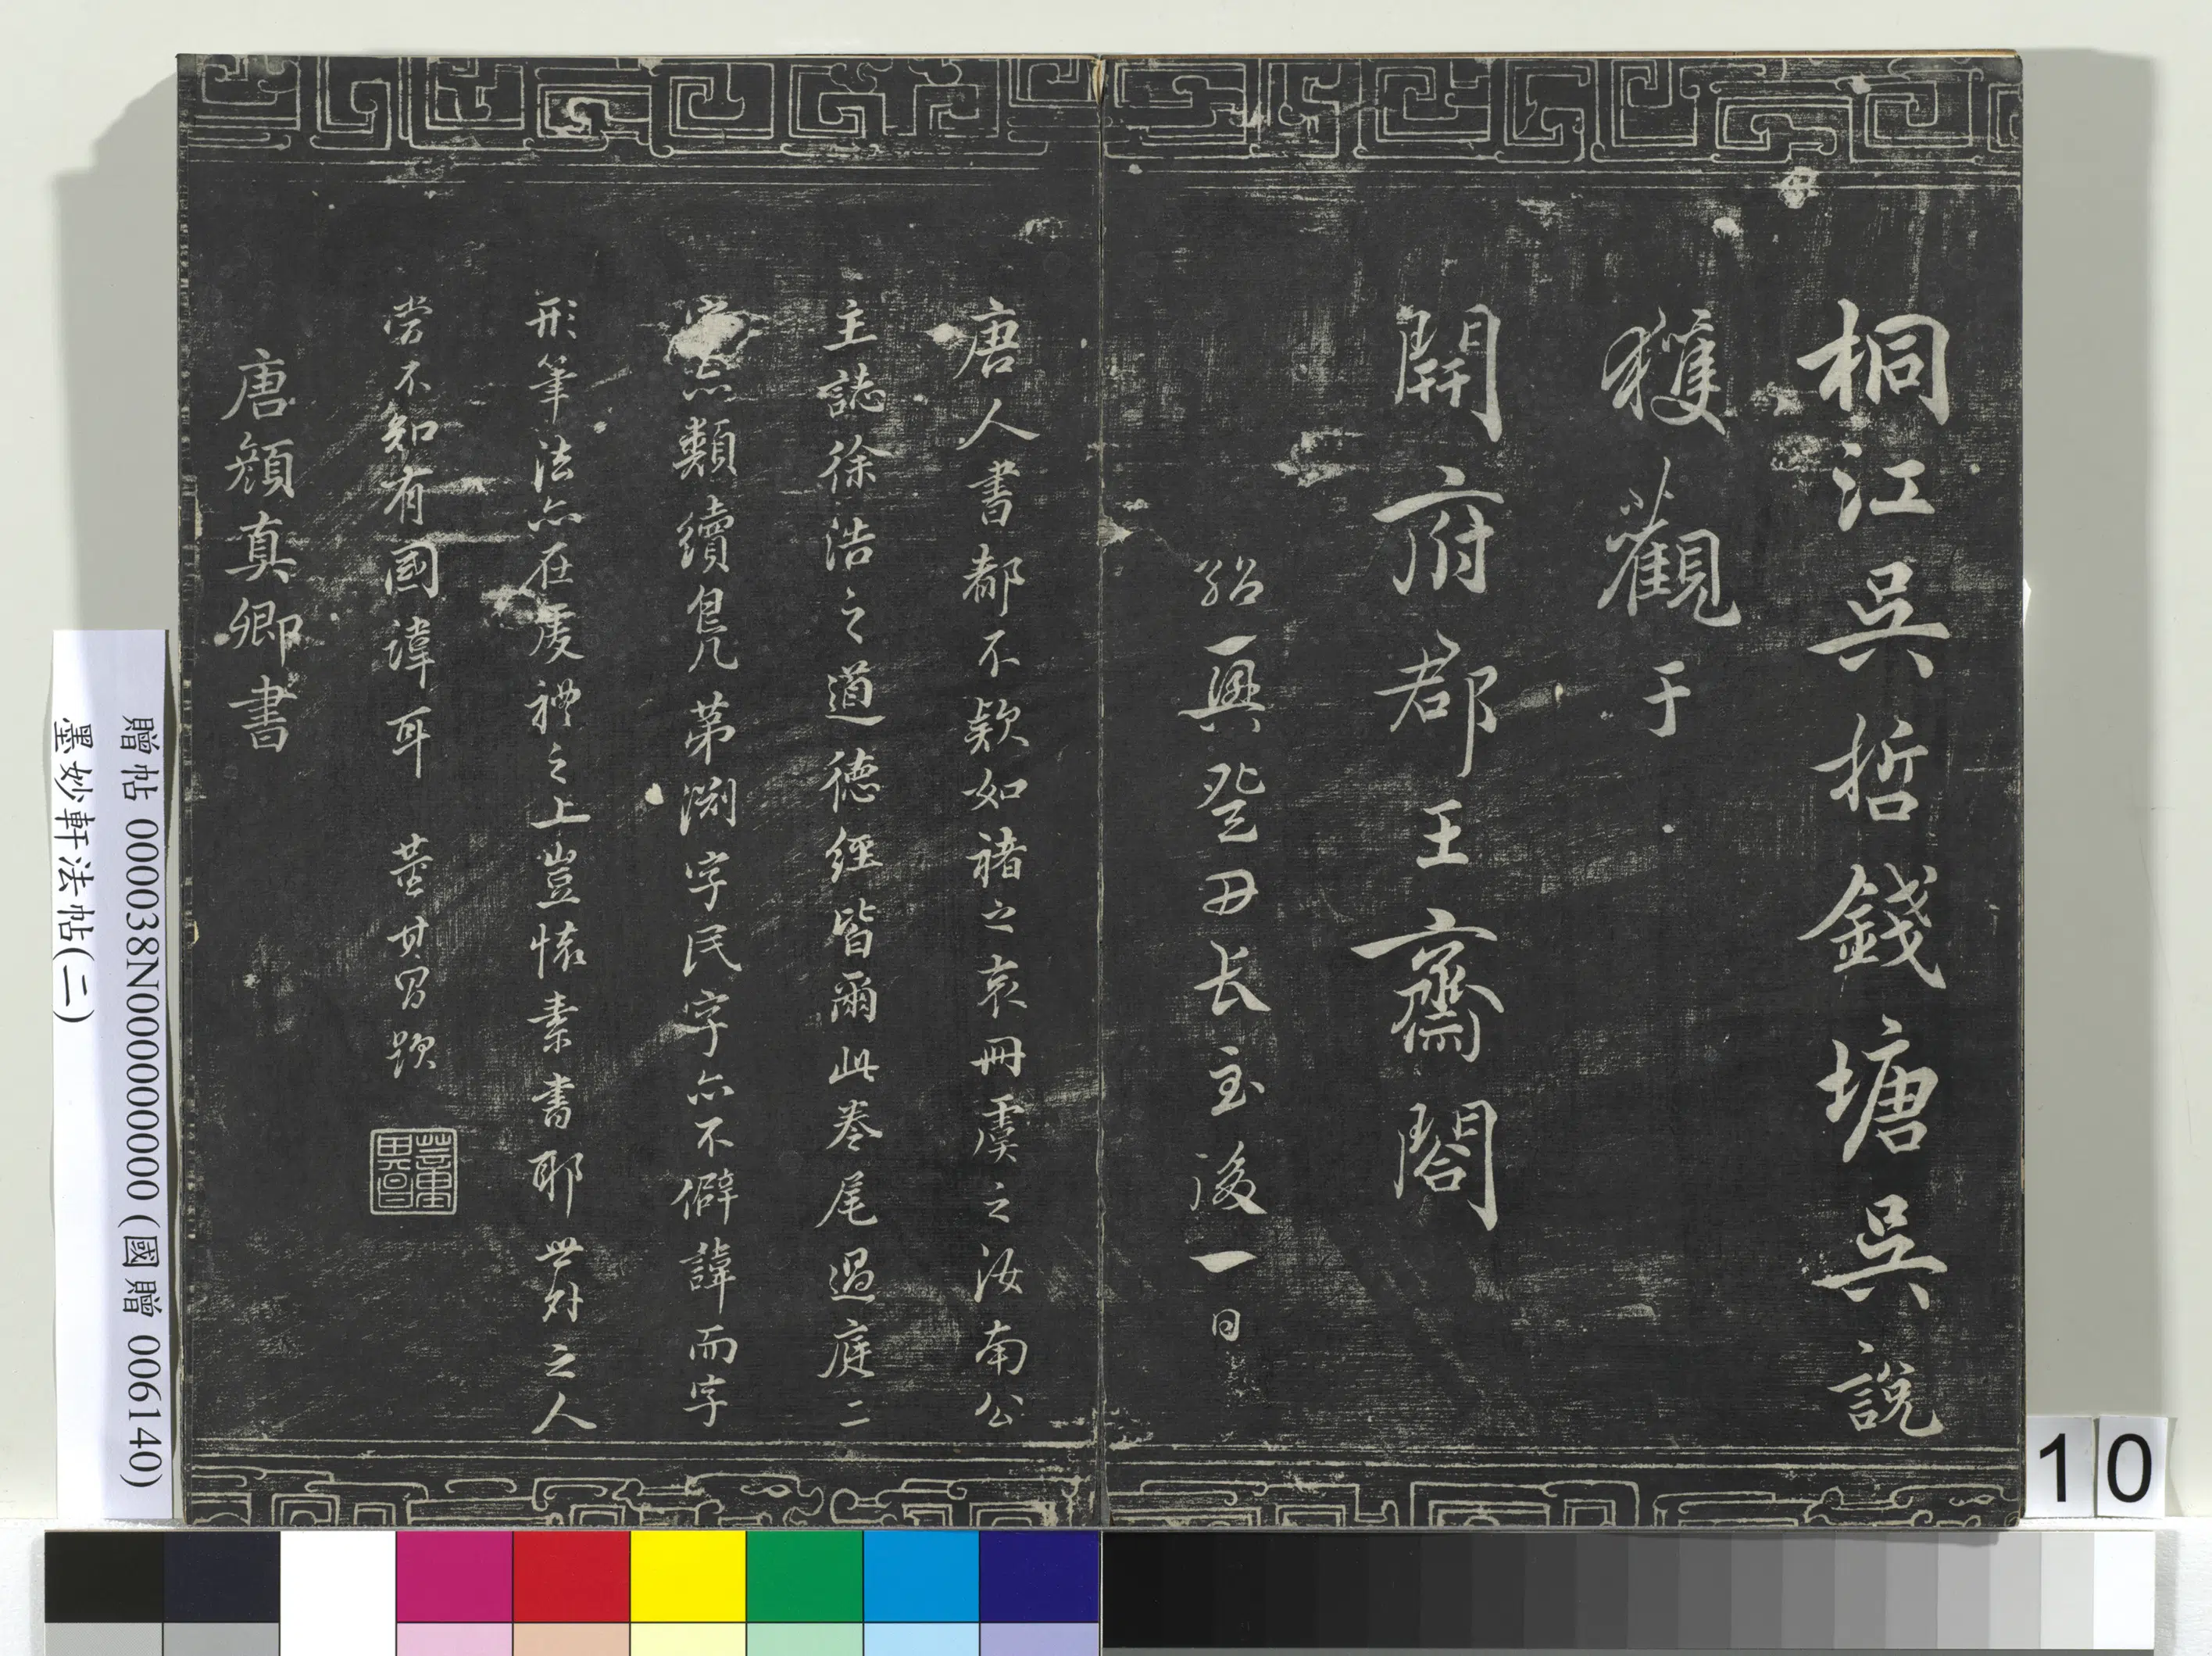 桐江吳哲錢塘吳說
獲觀于
開府郡王齋閤
紹興癸丑長至後一日
唐人書都不款如褚之哀冊虞之汝南公
主誌徐浩之道德經皆爾此卷尾過庭二
字亦類續鳧第淵字民字亦不僻諱而字
形筆法亦在虔禮之上豈懷素書耶世外之人
當不知有國諱耳 董其昌題
董其昌
唐顏真卿書
贈帖 000038N000000000 (國贈 006140)
墨妙軒法帖(二)
10